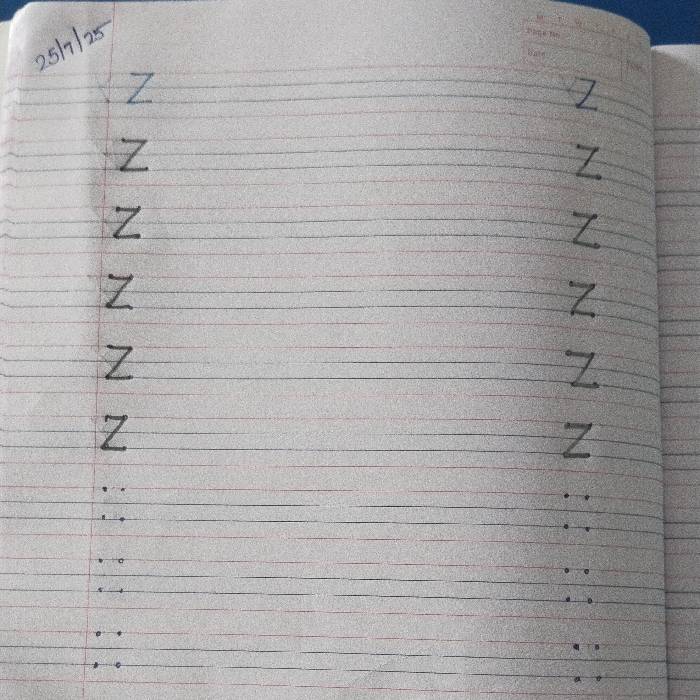 25/7/25
M T W
Page No
Date
Z Z
Z Z
Z Z
Z Z
Z Z
Z Z